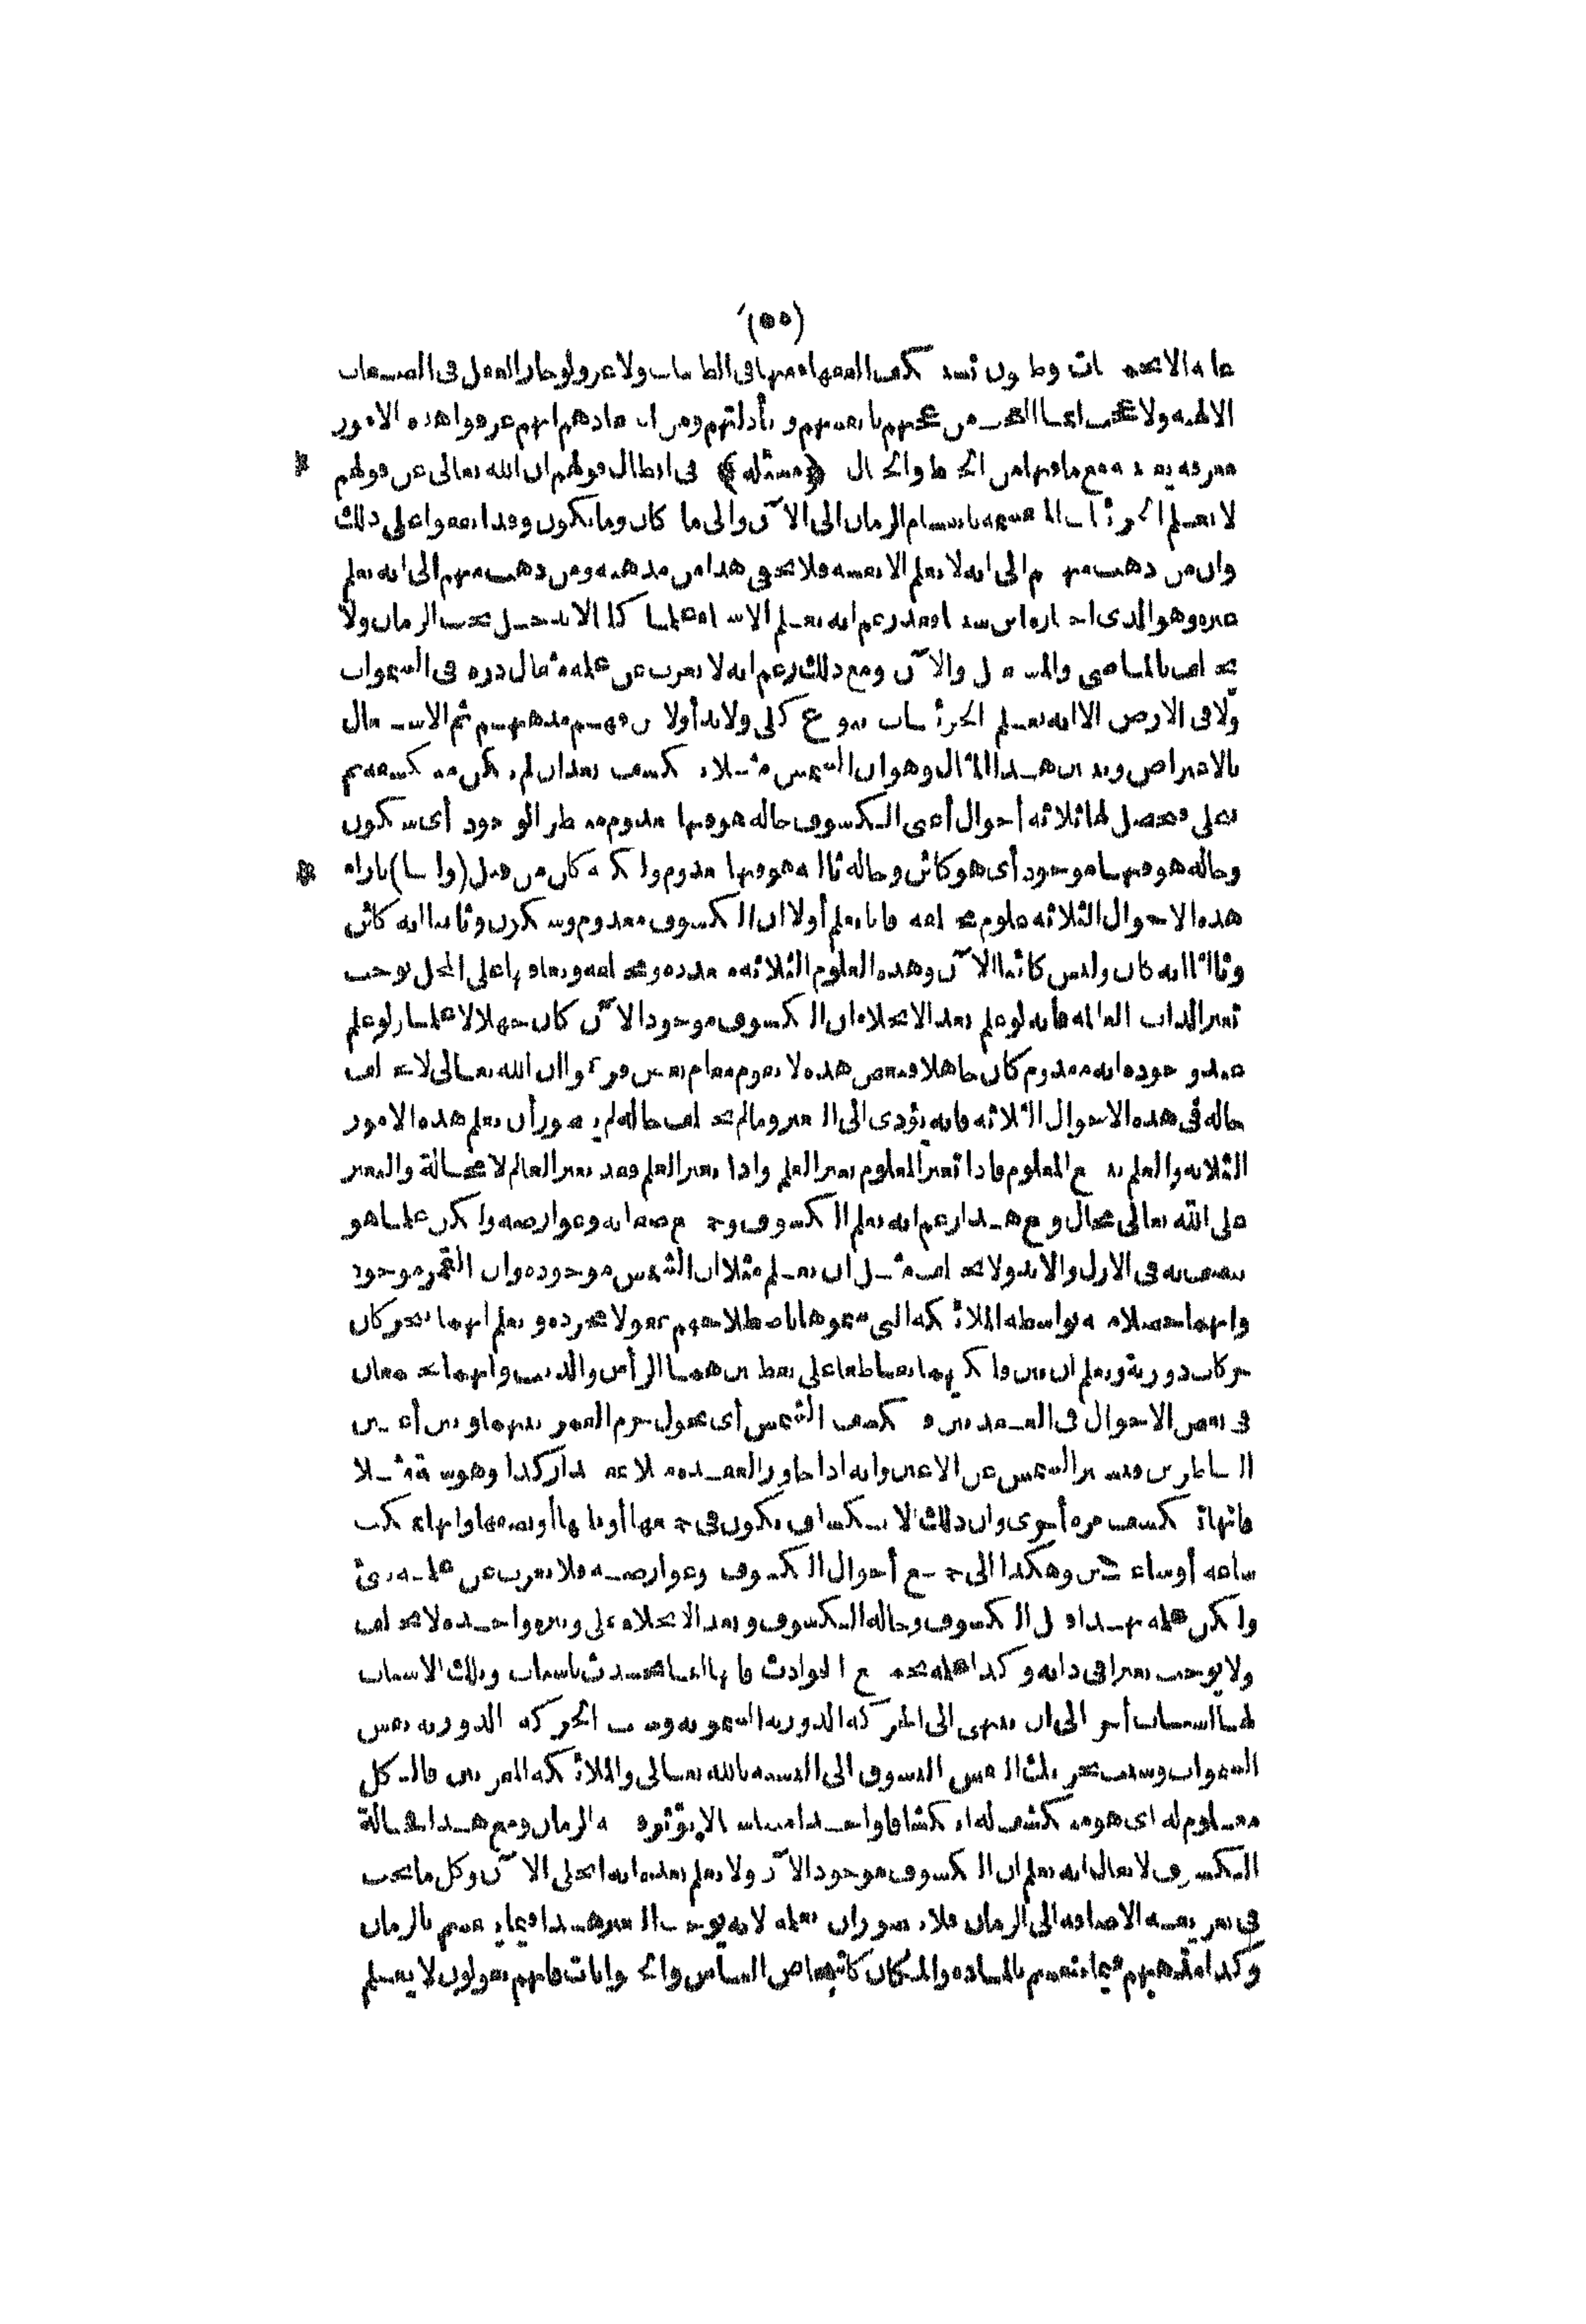 (٥٥)
غاية الا تخمينات وظنون تستنكف الفقهاء منها فى الظنيات ولا غرو لو حار العقل فى الصفات
الالهية ولا عجب انما العجب من عجبهم بانفسهم وبأدلتهم ومن اعتقادهم انهم عرفوا هذه الامور
معرفة يقينية مع ما فيها من الخبط والخبال (مسئلة) فى ابطال قولهم ان الله تعالى عن قولهم
لا يعلم الجزئيات المنقسمة بانقسام الزمان الى الآن والى ما كان وما يكون وقد اتفقوا على ذلك
وان من ذهب منهم الى انه لا يعلم الا نفسه فلا يخفى هذا من مذهبه ومن ذهب منهم الى انه يعلم
غيره وهو الذى اختاره ابن سينا فقد زعم انه يعلم الاشياء علما كليا لا يدخل تحت الزمان ولا
يختلف بالماضى والمستقبل والآن ومع ذلك زعم انه لا يعزب عن علمه مثقال ذرة فى السموات
ولا فى الارض الا انه يعلم الجزئيات بنوع كلى ولا بد أولا من فهم مذهبهم ثم الاشتغال
بالاعتراض ونبين هذا المثال وهو ان الشمس مثلا تنكسف بعد ان لم تكن منكسفة ثم
تنجلى فيحصل لها ثلاثة أحوال أعنى الكسوف حالة هو فيها معدوم منتظر الوجود أى سيكون
وحالة هو فيها موجود أى هو كائن وحالة ثالثة هو فيها معدوم ولكنه كان من قبل (ولنا) بازاء
هذه الاحوال الثلاثة علوم مختلفة فانا نعلم أولا ان الكسوف معدوم وسيكون وثانيا انه كائن
وثالثا انه كان وليس كائنا الآن وهذه العلوم الثلاثة متعددة ومختلفة وتعاقبها على المحل يوجب
تغير الذات العالمة فانه لو علم بعد الانجلاء ان الكسوف موجود الآن كان جهلا لا علما ولو علم
عند وجوده انه معدوم كان جاهلا فبعض هذه لا يقوم مقام بعض فزعموا ان الله تعالى لا يختلف
حاله فى هذه الاحوال الثلاثة فانه يؤدى الى التغير وما لم يختلف حاله لم يتصور أن يعلم هذه الامور
الثلاثة والعلم يتبع المعلوم فاذا تغير المعلوم تغير العلم واذا تغير العلم فقد تغير العالم لا محالة والتغير
على الله تعالى محال ومع هذا زعم انه يعلم الكسوف وجميع صفاته وعوارضه ولكن علما هو
يتصف به فى الازل والابد ولا يختلف مثل ان يعلم مثلا ان الشمس موجودة وان القمر موجود
وانهما حصلا منه بواسطة الملائكة التى سموها باصطلاحهم عقولا مجردة ويعلم انهما يتحركان
حركات دورية ويعلم ان بين فلكيهما تقاطعا على نقطتين هما الرأس والذنب وانهما يجتمعان
فى بعض الاحوال فى العقدتين فتنكسف الشمس أى يحول جرم القمر بينهما وبين أعين
الناظرين فتستتر الشمس عن الاعين وانه اذا جاوز العقدة مثلا بمقدار كذا وهو سنة مثلا
فانها تنكسف مرة أخرى وان ذلك الانكساف يكون فى جميعها أو ثلثها أو نصفها وانها تمكث
ساعة أو ساعتين وهكذا الى جميع أحوال الكسوف وعوارضه فلا يعزب عن علمه شئ
ولكن علمه بهذا قبل الكسوف وحالة الكسوف وبعد الانجلاء على وتيرة واحدة لا يختلف
ولا يوجب تغيرا فى ذاته وكذا علمه بجميع الحوادث فانها انما تحدث باسباب وتلك الاسباب
لها أسباب أخر الى ان تنتهى الى الحركة الدورية السموية وسبب الحركة الدورية نفس
السموات وسبب تحريك النفس الشوق الى التشبه بالله تعالى والملائكة المقربين فالكل
معلوم له اى هو منكشف له انكشافا واحدا متناسبا لا يؤثر فيه الزمان ومع هذا فحالة
الكسوف لا يقال انه يعلم ان الكسوف موجود الآن ولا يعلم بعده انه انجلى الآن وكل ما يجب
فى تعريفه الاضافة الى الزمان فلا يتصور ان يعلمه لانه يوجب التغير هذا فيما ينقسم بالزمان
وكذا مذهبهم فيما ينقسم بالمادة والمكان كاشخاص الناس والحيوانات فانهم يقولون لا يعلم